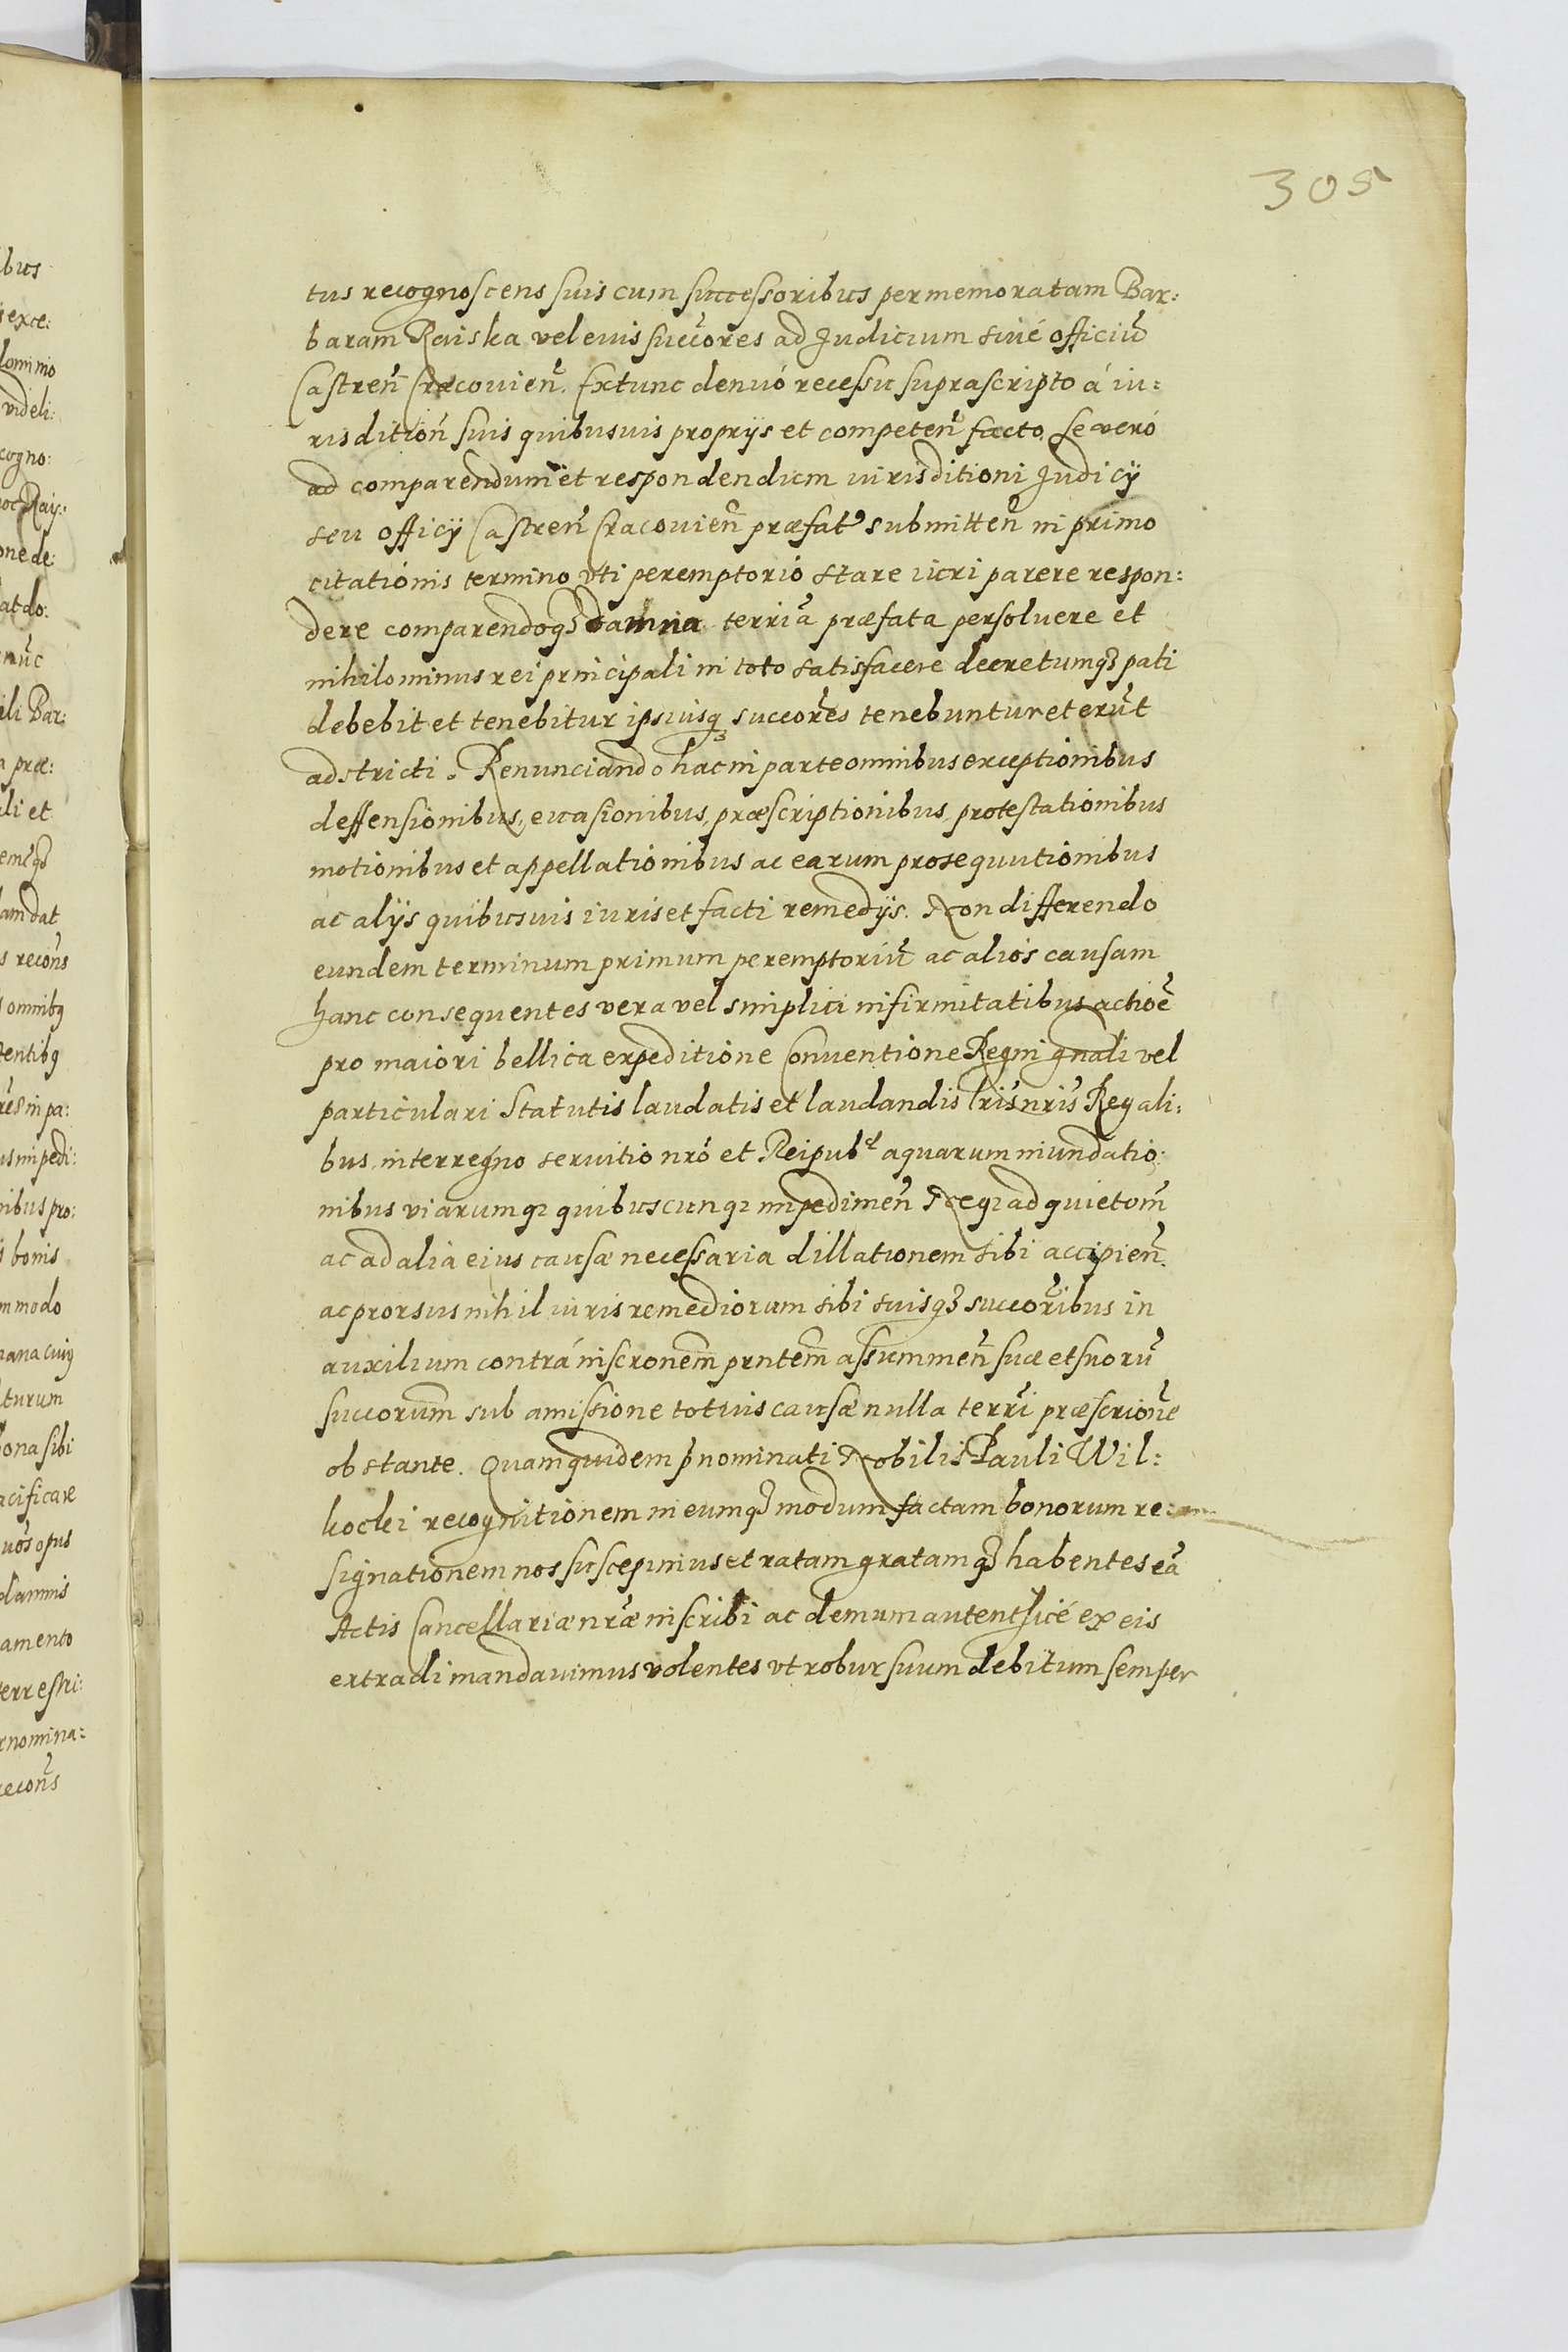 305
tus recognoscens suis cum successoribus per memoratam Bar:
baram Raiska vel euis succõres ad Judicium siué officiũ
Castreñ Cracouieñ. Extunc denuó recessu suprascripto á iu:
risditioñ suis quibusuis proprijs et competeñ facto. Se veró
ad comparendum et respondendum iurisditioni Judicij
seu officij Castreñ Cracouieñ præfat submitteñ in primo
citationis termino vti peremptorió stare iuri parere respon:
dere comparendoq3 damna terriã præfata persoluere et
nihilominus rei principali in toto satisfacere decretumq3 pati
debebit et tenebitur ipsiusq3 succeõres tenebuntur et erũt
adstricti. Renunciando hac in parte omnibus exceptionibus
deffensionibus, euasionibus, præscriptionibus, protestationibus
motionibus et appellationibus ac earum prosequutionibus
ac alijs quibusuis iuris et facti remedijs. Non differendo
eundem terminum primum peremptoriũ ac alios causam
hanc consequentes vera vel simplici infirmitatibus actiõe
pro maiori bellica expeditione Conuentione Regni gnali vel
particulari Statutis laudatis et laudandis lris nris Regali:
bus, interregno seruitio nró et Reipub^e aquarum inundatio:
nibus viarumq3 quibuscunq3 impedimeñ Neq3 ad quietom̃
ac ad alia eius causæ necessaria dillationem sibi accipieñ.
ac prorsus nihil iuris remediorum sibi suisq3 succorĩbus in
auxilium contrá inscronem̃ prntem̃ assummeñ suæ et suorũ
succorum̃ sub amissione totius causæ nulla terrĩ præscrioñe
obstante. Quamquidem p̃nominati Nobilis Pauli Wil:
kocki recognitionem in eumq3 modum factam bonorum re:
signationem nos suscepimus et ratam gratamq3 habentes eã
Actis Cancellariæ nræ inscribi ac demum autenticé ex eis
extradi mandauimus volentes vt robur suum debitum semper